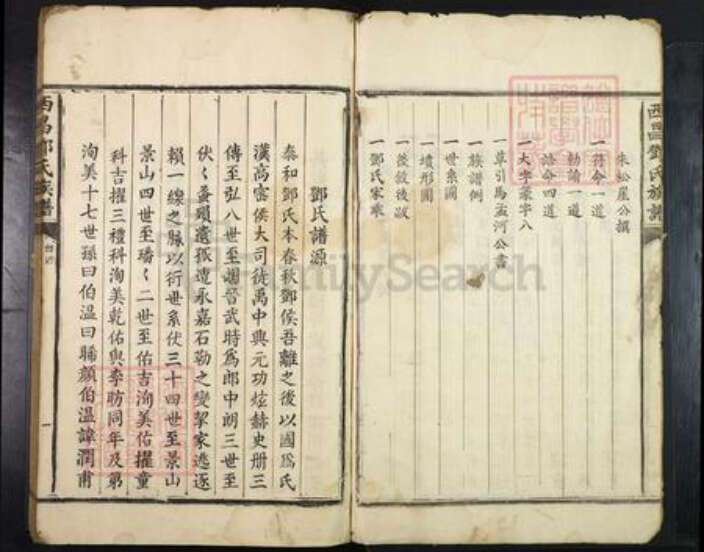 西昌鄧氏族譜
朱松屋公撰
一符命一道
勅諭一道
誥命四道
一大字篆字八
一草引馬孟河公書
一族譜例
一世系圖
一墳形圖
一後敘後跋
一鄧氏家乘
鄧氏譜源
泰和鄧氏本春秋鄧侯吾離之後以國爲氏
漢高密侯大司徒禹中興元功炫赫史冊三
傳至弘八世至 晉武時爲郎中朗三世至
伏々蚤殞遺孤遭永嘉石勒之變挈家逃逐
賴一線之脉以衍世系伏三十四世至景山
景山四世至璠々二世至佑吉洵美佑擢童
科吉擢三禮科洵美乾佑與李昉同年及第
洵美十七世孫曰伯溫曰 顏伯溫諱潤甫
西昌鄧氏族譜
FamilySearch